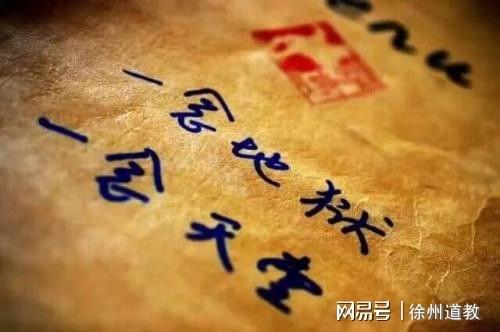 一念地狱
一念天堂
网易号 | 徐州道教